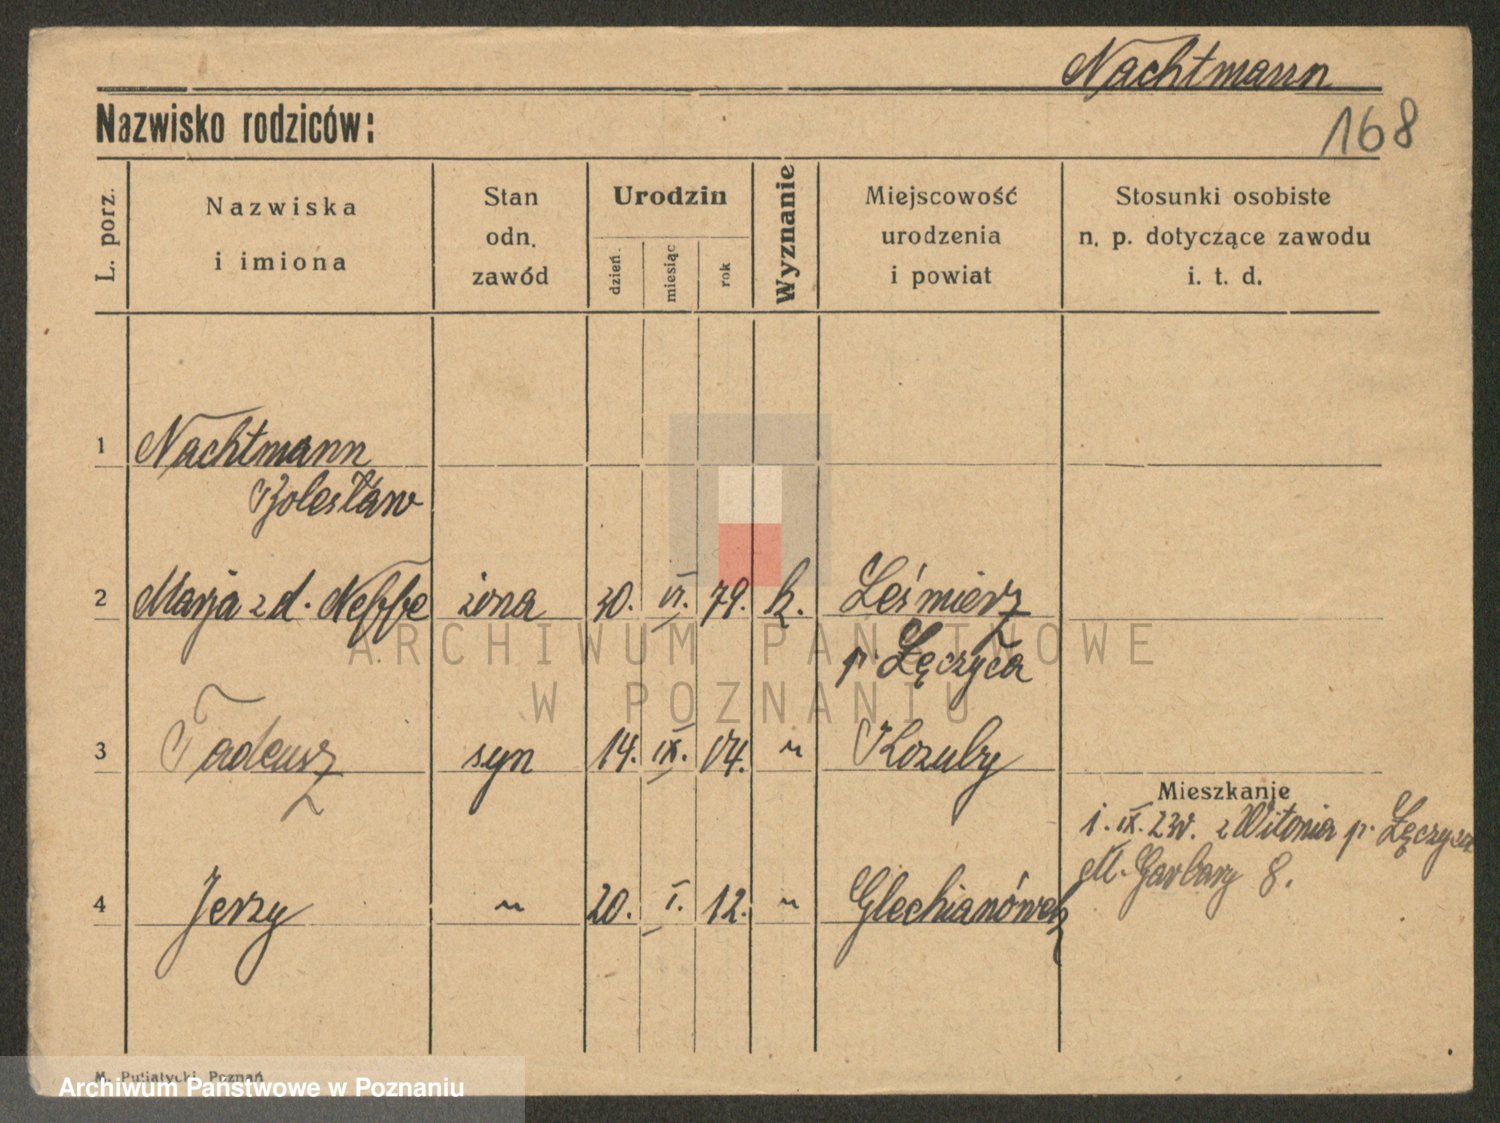 Nachtmann
Nazwisko rodziców:
168
L. porz.
Nazwiska
i imiona
Stan
odn.
zawód
Urodzin
dzień.
miesiąc
rok
Wyznanie
Miejscowość
urodzenia
i powiat
Stosunki osobiste
n. p. dotyczące zawodu
i. t. d.
1 Nachtmann
Bolesław
2 Marja z d. Neffe żona 30. VI. 79. k. Leśmierz
p. Łęczyca
3 Tadeusz syn 14. IX. 04. " Kozuby
Mieszkanie
1. IX. 23r. z Witonia p. Łęczyca
M. Garbary 8.
4 Jerzy " 20. I. 12. "
M. Putiatycki, Poznań
ARCHIWUM PAŃSTWOWE
W POZNANIU
Archiwum Państwowe w Poznaniu